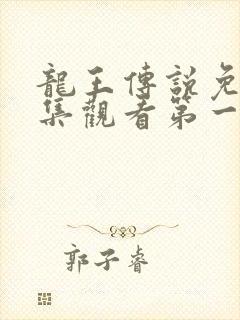 龍王傳說免
集觀看第一
郭子睿